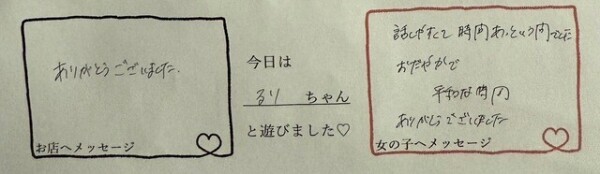 ありがとうございました.
お店へメッセージ
今日は
るり ちゃん
と遊びました♡
話しやすくて 時間あっという間でした
おだやかで
平和な時間
ありがとうございました
女の子へメッセージ